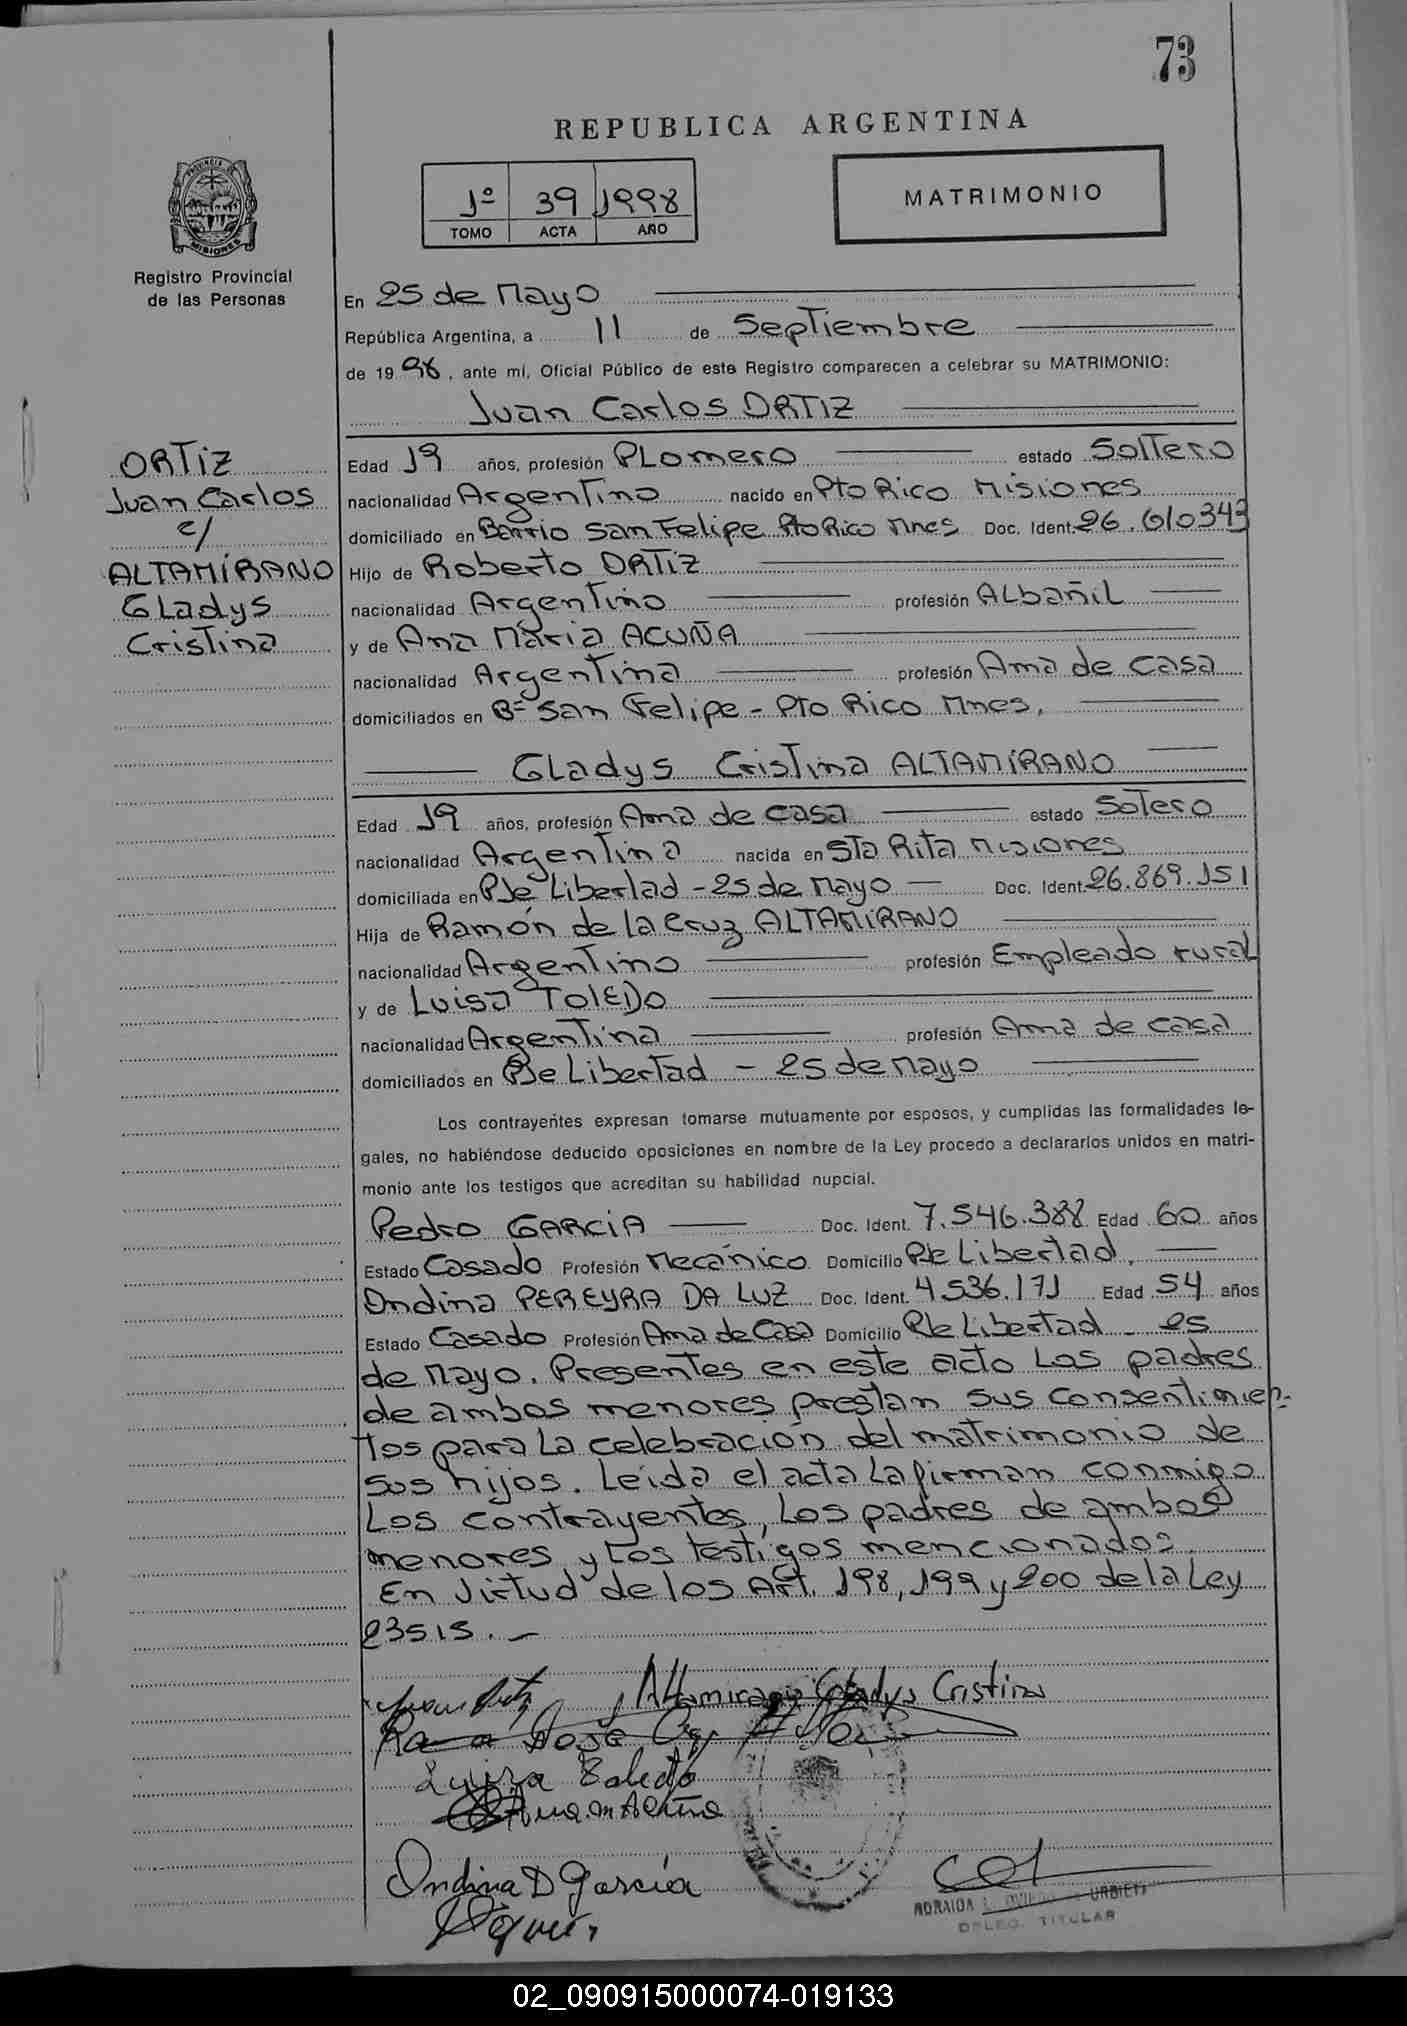 73
REPUBLICA ARGENTINA
1º 39 1998
TOMO ACTA AÑO
MATRIMONIO
PROVINCIA DE
MISIONES
Registro Provincial
de las Personas
En 25 de Mayo
República Argentina, a 11 de Septiembre
de 19 98, ante mí, Oficial Público de este Registro comparecen a celebrar su MATRIMONIO:
Juan Carlos ORTIZ
ORTIZ
Juan Carlos
c/
ALTAMIRANO
Gladys
Cristina
Edad 19 años, profesión Plomero estado Soltero
nacionalidad Argentino nacido en Pto Rico Misiones
domiciliado en Barrio San Felipe Pto Rico Mnes Doc. Ident. 26.610343
Hijo de Roberto ORTIZ
nacionalidad Argentino profesión Albañil
y de Ana Maria ACUÑA
nacionalidad Argentina profesión Ama de casa
domiciliados en Bº San Felipe - Pto Rico Mnes.
Gladys Cristina ALTAMIRANO
Edad 19 años, profesión Ama de casa estado Soltero
nacionalidad Argentina nacida en Sta Rita Misiones
domiciliada en Pje Libertad - 25 de Mayo Doc. Ident. 26.869.151
Hija de Ramón de la Cruz ALTAMIRANO
nacionalidad Argentino profesión Empleado rural
y de Luisa TOLEDO
nacionalidad Argentina profesión Ama de casa
domiciliados en Pje Libertad - 25 de Mayo
Los contrayentes expresan tomarse mutuamente por esposos, y cumplidas las formalidades le-
gales, no habiéndose deducido oposiciones en nombre de la Ley procedo a declararlos unidos en matri-
monio ante los testigos que acreditan su habilidad nupcial.
Pedro GARCIA Doc. Ident. 7.546.388 Edad 60 años
Estado Casado Profesión Mecánico Domicilio Pje Libertad.
Ondina PEREYRA DA LUZ Doc. Ident. 4.536.171 Edad 54 años
Estado Casado Profesión Ama de Casa Domicilio Pje Libertad - 25
de Mayo. Presentes en este acto Los padres
de ambos menores prestan sus consentimien-
tos para La celebración del matrimonio de
sus hijos. Leida el acta La firman conmigo
Los contrayentes, Los padres de ambos
menores y Los testigos mencionados.
En virtud de los Art. 198, 199 y 200 de la Ley
23515.-
Juan Ortiz Altamirano Gladys Cristina
Luisa Toledo
Ana.M Acuña
Ondina D García
DELEG. TITULAR
02_090915000074-019133